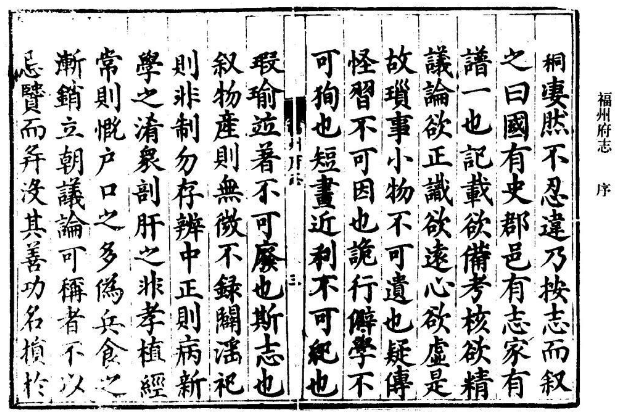 福州府志 序
悽然不忍違乃按志而叙
之曰國有史郡邑有志家有
譜一也記載欲備考核欲精
議論欲正識欲遠心欲虛是
故瑣事小物不可遺也疑傳
怪習不可因也詭行僻學不
可狥也短畫近利不可紀也
三
瑕瑜並著不可廢也斯志也
叙物產則無徵不録闢滛祀
則非制勿存辨中正則病新
學之淆衆剖肝之非孝植經
常則慨户口之多偽兵食之
漸銷立朝議論可稱者不以
忌而并沒其善功名損於